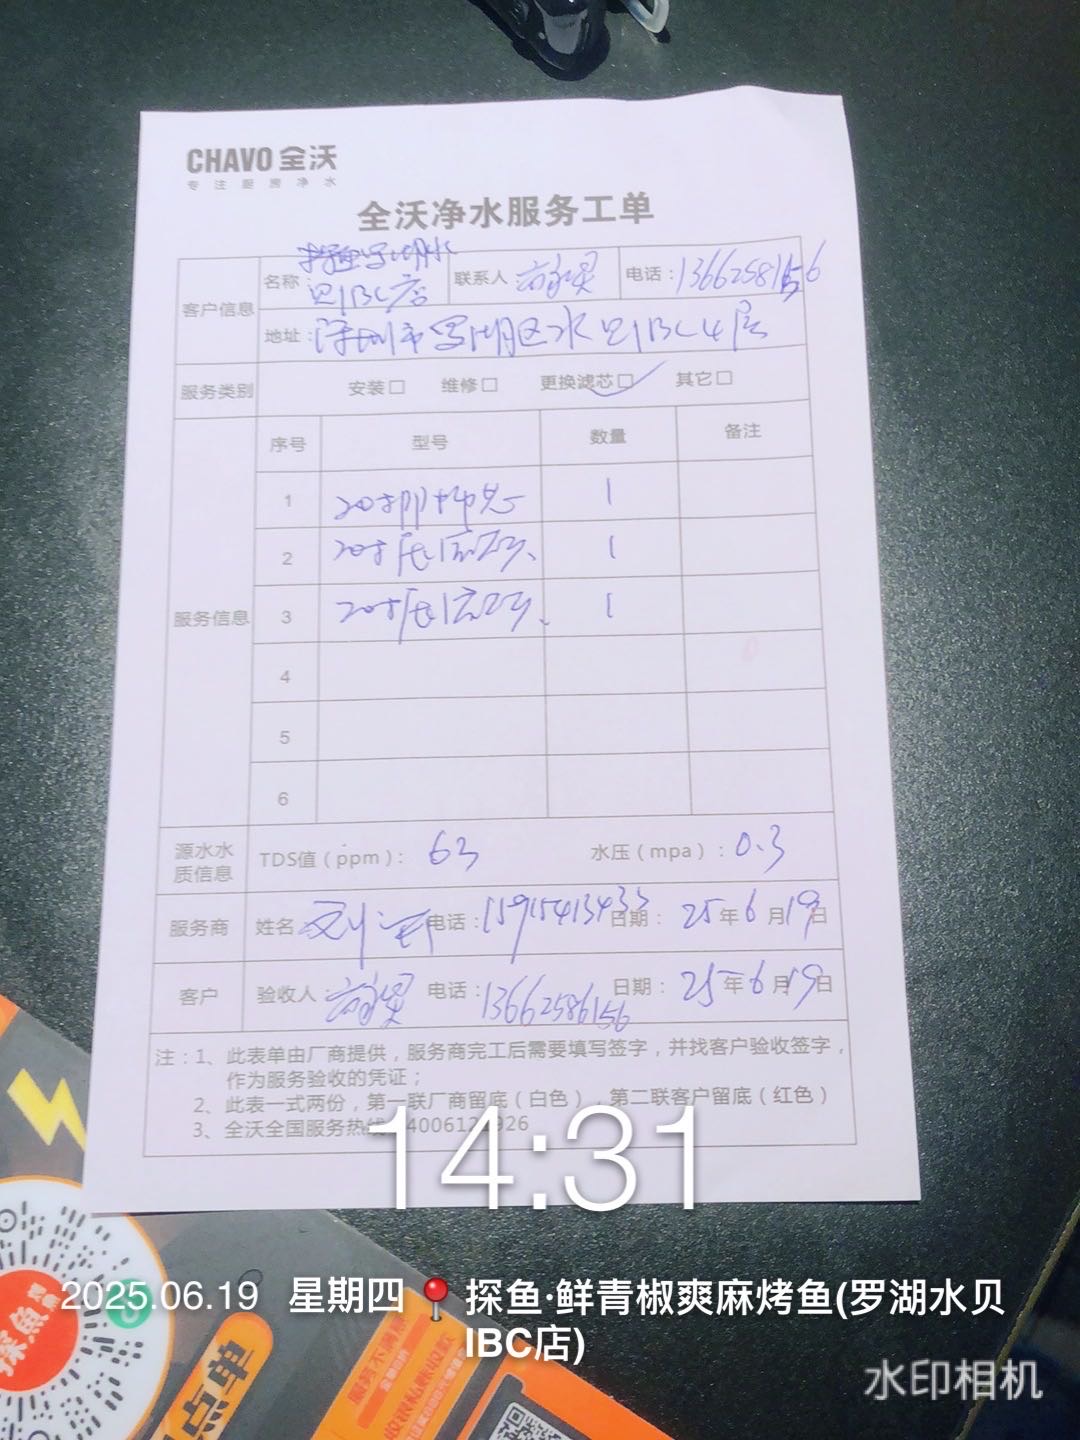 CHAVO 全沃
专注厨房净水
全沃净水服务工单
客户信息
名称: 探鱼罗湖水贝IBC店
联系人
电话: 13662586156
地址: 深圳市罗湖区水贝IBC4层
服务类别 安装□ 维修□ 更换滤芯□ 其它□
服务信息
序号 型号 数量 备注
1 20寸 1
2 20寸 1
3 20寸 1
4
5
6
源水水质信息 TDS值（ppm）: 63 水压（mpa）: 0.3
服务商 姓名 刘 电话: 15915413433 日期: 25年6月19日
客户 验收人: 电话: 13662586156 日期: 25年6月19日
注: 1、此表单由厂商提供，服务商完工后需要填写签字，并找客户验收签字，
作为服务验收的凭证；
2、此表一式两份，第一联厂商留底（白色），第二联客户留底（红色）
3、全沃全国服务热线
14:31
2025.06.19 星期四 探鱼·鲜青椒爽麻烤鱼(罗湖水贝
IBC店)
水印相机
探魚
点单